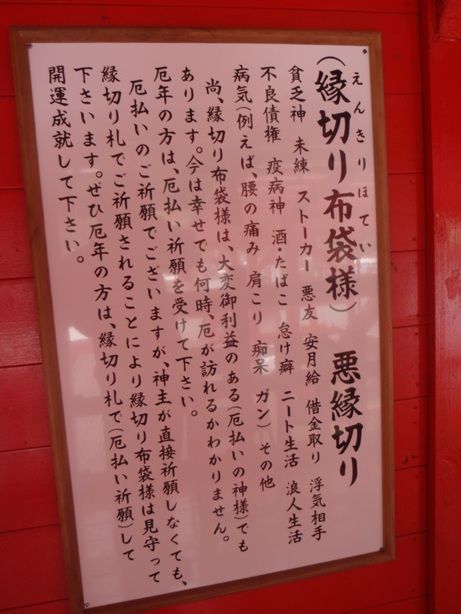 えんきりほてい
(縁切り布袋様) 悪縁切り
貧乏神 未練 ストーカー 悪友 安月給 借金取り 浮気相手
不良債権 疫病神 酒・たばこ 怠け癖 ニート生活 浪人生活
病気(例えば、腰の痛み 肩こり 痴呆 ガン) その他
尚、縁切り布袋様は、大変御利益のある(厄払いの神様)でも
あります。今は幸せでも何時、厄が訪れるかわかりません。
厄年の方は、厄払い祈願を受けて下さい。
厄払いのご祈願でございますが、神主が直接祈願しなくても、
縁切り札でご祈願されることにより縁切り布袋様は見守って
下さいます。ぜひ厄年の方は、縁切り札で(厄払い祈願)して
開運成就して下さい。